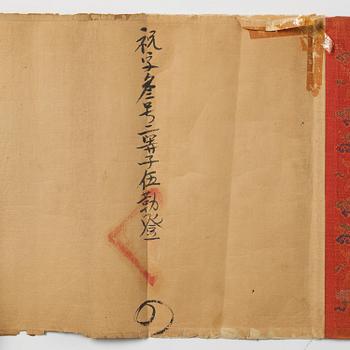 祝字叁号二算子伍勒登